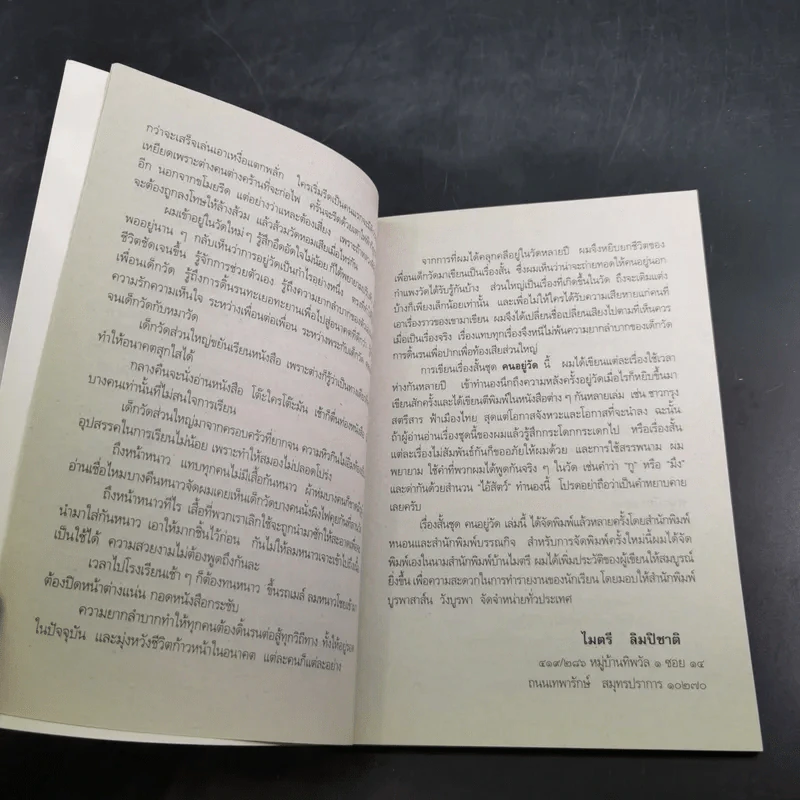 กว่าจะเสร็จเล่นเอาเหงื่อแตกพลั่ก ใครเริ่มรีดเป็นคนแรก
เหยียดเพราะต่างคนต่างคร้านที่จะก่อไฟ ครั้นจะรีดด้วย
อีก นอกจากขโมยรีด แต่อย่างว่าแหละต้องเสี่ยง เพราะถ้า
จะต้องถูกลงโทษให้ล้างส้วม แล้วส้วมวัดหอมเสียเมื่อไหร่กัน
ผมเข้าอยู่ในวัดใหม่ๆ รู้สึกอึดอัดใจไม่น้อย ก็ได้พยายาม
พออยู่นาน ๆ กลับเห็นว่าการอยู่วัดเป็นกำไรอย่างหนึ่ง
ชีวิตชัดเจนขึ้น รู้จักการช่วยตัวเอง รู้ถึงความยากลำบากของ
เพื่อนเด็กวัด รู้ถึงการดิ้นรนทะเยอทะยานเพื่อไปสู่อนาคตที่ดีกว่า
ความรักความเห็นใจ ระหว่างเพื่อนต่อเพื่อน ระหว่างพระกับเด็กวัด
จนเด็กวัดกับหมาวัด
เด็กวัดส่วนใหญ่ขยันเรียนหนังสือ เพราะต่างก็รู้ว่าเป็นทาง
ทำให้อนาคตสุกใสได้
กลางคืนจะนั่งอ่านหนังสือ โต๊ะใครโต๊ะมัน เช้าก็ตื่นท่องหนังสือ
บางคนเท่านั้นที่ไม่สนใจการเรียน
เด็กวัดส่วนใหญ่มาจากครอบครัวที่ยากจน ความหิว
อุปสรรคในการเรียนไม่น้อย เพราะทำให้สมองไม่ปลอดโปร่ง
ถึงหน้าหนาว แทบทุกคนไม่มีเสื้อกันหนาว ผ้าห่มบางคนก็
อ่านเชื่อไหมบางคืนหนาวจัดผมเคยเห็นเด็กวัดบางคนนั่งผิงไฟคุยกัน
ถึงหน้าหนาวทีไร เสื้อที่พวกเราเลิกใช้จะถูกนำมาซักให้สะอาด
นำมาใส่กันหนาว เอาให้มากชิ้นไว้ก่อน กันไม่ให้ลมหนาวเจาะเข้าไป
เป็นใช้ได้ ความสวยงามไม่ต้องพูดถึงกันละ
เวลาไปโรงเรียนเช้า ๆ ก็ต้องทนหนาว ขึ้นรถเมล์ ลมหนาวโชย
ต้องปิดหน้าต่างแน่น กอดหนังสือกระชับ
ความยากลำบากทำให้ทุกคนต้องดิ้นรนต่อสู้ทุกวิถีทาง ทั้งให้อยู่รอด
ในปัจจุบัน และมุ่งหวังชีวิตก้าวหน้าในอนาคต แต่ละคนก็แต่ละอย่าง
จากการที่ผมได้คลุกคลีอยู่ในวัดหลายปี ผมจึงหยิบยกชีวิตของ
เพื่อนเด็กวัดมาเขียนเป็นเรื่องสั้น ซึ่งผมเห็นว่าน่าจะถ่ายทอดให้คนอยู่นอก
กำแพงวัดได้รับรู้กันบ้าง ส่วนใหญ่เป็นเรื่องที่เกิดขึ้นในวัด ถึงจะเติมแต่ง
บ้างก็เพียงเล็กน้อยเท่านั้น และเพื่อไม่ให้ใครได้รับความเสียหายแก่คนที่
เอาเรื่องราวของเขามาเขียน ผมจึงได้เปลี่ยนชื่อเปลี่ยนเสียงไปตามที่เห็นควร
เมื่อเป็นเรื่องจริง เรื่องแทบทุกเรื่องจึงหนีไม่พ้นความยากลำบากของเด็กวัด
การดิ้นรนเพื่อปากเพื่อท้องเสียส่วนใหญ่
การเขียนเรื่องสั้นชุด คนอยู่วัด นี้ ผมได้เขียนแต่ละเรื่องใช้เวลา
ห่างกันหลายปี เข้าทำนองนึกถึงความหลังครั้งอยู่วัดเมื่อไรก็หยิบขึ้นมา
เขียนสักครั้งและได้เขียนตีพิมพ์ในหนังสือต่าง ๆ กันหลายเล่ม เช่น ชาวกรุง
สตรีสาร ฟ้าเมืองไทย สุดแต่โอกาสจังหวะและโอกาสที่จะนำลง ฉะนั้น
ถ้าผู้อ่านอ่านเรื่องชุดนี้ของผมแล้วรู้สึกกระโดดกระเดกไป หรือเรื่องสั้น
แต่ละเรื่องไม่สัมพันธ์กันก็ขออภัยให้ผมด้วย และการใช้สรรพนาม ผม
พยายาม ใช้คำที่พวกผมได้พูดกันจริง ๆ ในวัด เช่นคำว่า “กู” หรือ “มึง”
และด่ากันด้วยสำนวน “ไอ้สัตว์” ทำนองนี้ โปรดอย่าถือว่าเป็นคำหยาบคาย
เลยครับ
เรื่องสั้นชุด คนอยู่วัด เล่มนี้ ได้จัดพิมพ์แล้วหลายครั้งโดยสำนักพิมพ์
หนอนและสำนักพิมพ์บรรณกิจ สำหรับการจัดพิมพ์ครั้งใหม่นี้ผมได้จัด
พิมพ์เองในนามสำนักพิมพ์บ้านไมตรี ผมได้เพิ่มประวัติของผู้เขียนให้สมบูรณ์
ยิ่งขึ้น เพื่อความสะดวกในการทำรายงานของนักเรียน โดยมอบให้สำนักพิมพ์
บูรพาสาส์น วังบูรพา จัดจำหน่ายทั่วประเทศ
ไมตรี ลิมปิชาติ
๔๑๙/๒๘๖ หมู่บ้านทิพวัล ๑ ซอย ๑๔
ถนนเทพารักษ์ สมุทรปราการ ๑๐๒๗๐